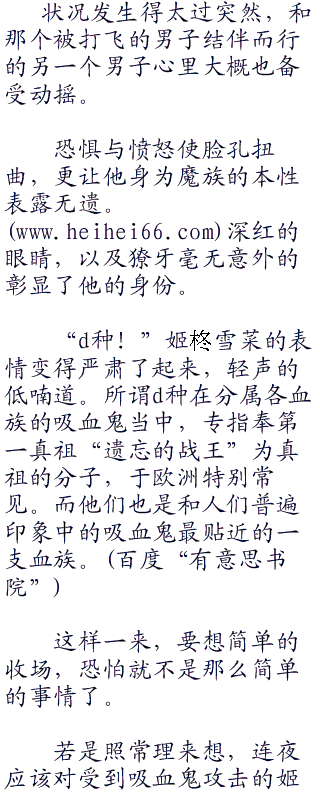 状况发生得太过突然，和
那个被打飞的男子结伴而行
的另一个男子心里大概也备
受动摇。
恐惧与愤怒使脸孔扭
曲，更让他身为魔族的本性
表露无遗。
(www.heihei66.com)深红的
眼睛，以及獠牙毫无意外的
彰显了他的身份。
“d种！”姬柊雪菜的表
情变得严肃了起来，轻声的
低喃道。所谓d种在分属各血
族的吸血鬼当中，专指奉第
一真祖“遗忘的战王”为真
祖的分子，于欧洲特别常
见。而他们也是和人们普遍
印象中的吸血鬼最贴近的一
支血族。(百度“有意思书
院”)
这样一来，要想简单的
收场，恐怕就不是那么简单
的事情了。
若是照常理来想，连夜
应该对受到吸血鬼攻击的姬